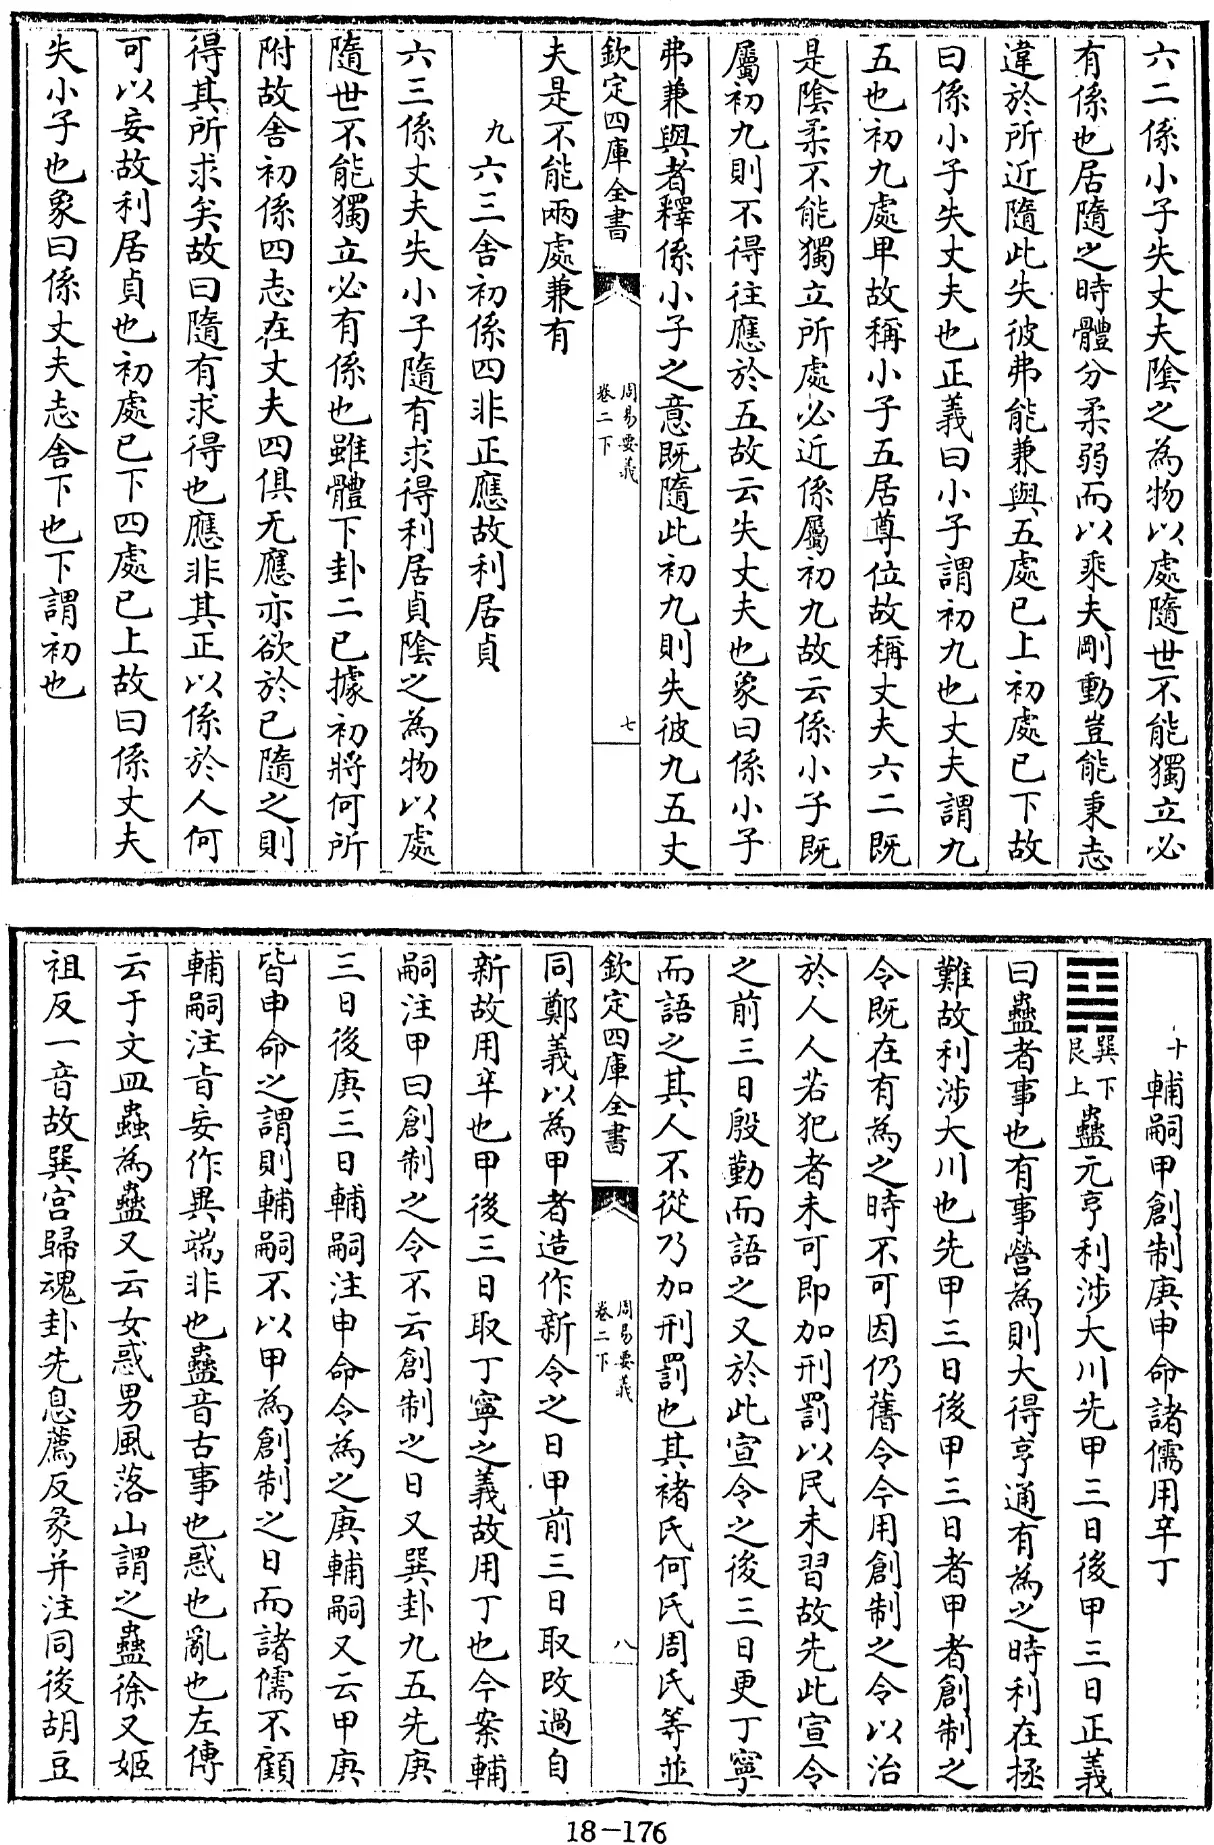 六二係小子失丈夫陰之為物以處隨世不能獨立必
有係也居隨之時體分柔弱而以乘夫剛動豈能秉志
違於所近隨此失彼弗能兼與五處已上初處已下故
曰係小子失丈夫也正義曰小子謂初九也丈夫謂九
五也初九處卑故稱小子五居尊位故稱丈夫六二既
是陰柔不能獨立所處必近係屬初九故云係小子既
屬初九則不得往應於五故云失丈夫也象曰係小子
弗兼與者釋係小子之意既隨此初九則失彼九五丈
欽定四庫全書
周易要義
卷二下
七
夫是不能兩處兼有
九六三舍初係四非正應故利居貞
六三係丈夫失小子隨有求得利居貞陰之為物以處
隨世不能獨立必有係也雖體下卦二已據初將何所
附故舍初係四志在丈夫四俱无應亦欲於已隨之則
得其所求矣故曰隨有求得也應非其正以係於人何
可以妄故利居貞也初處已下四處已上故曰係丈夫
失小子也象曰係丈夫志舍下也下謂初也
十輔嗣甲創制庚申命諸儒用辛丁
巽下
艮上
蠱元亨利涉大川先甲三日後甲三日正義
曰蠱者事也有事營為則大得亨通有為之時利在拯
難故利涉大川也先甲三日後甲三日者甲者創制之
令既在有為之時不可因仍舊令今用創制之令以治
於人人若犯者未可即加刑罰以民未習故先此宣令
之前三日殷勤而語之又於此宣令之後三日更丁寧
而語之其人不從乃加刑罰也其褚氏何氏周氏等並
欽定四庫全書
周易要義
卷二下
八
同鄭義以為甲者造作新令之日甲前三日取改過自
新故用辛也甲後三日取丁寧之義故用丁也今案輔
嗣注甲曰創制之令不云創制之日又巽卦九五先庚
三日後庚三日輔嗣注申命令為之庚輔嗣又云甲庚
皆申命之謂則輔嗣不以甲為創制之日而諸儒不顧
輔嗣注旨妄作異端非也蠱音古事也惑也亂也左傳
云于文皿蟲為蠱又云女惑男風落山謂之蠱徐又姬
祖反一音故巽宫歸魂卦先息薦反彖并注同後胡豆
18-176